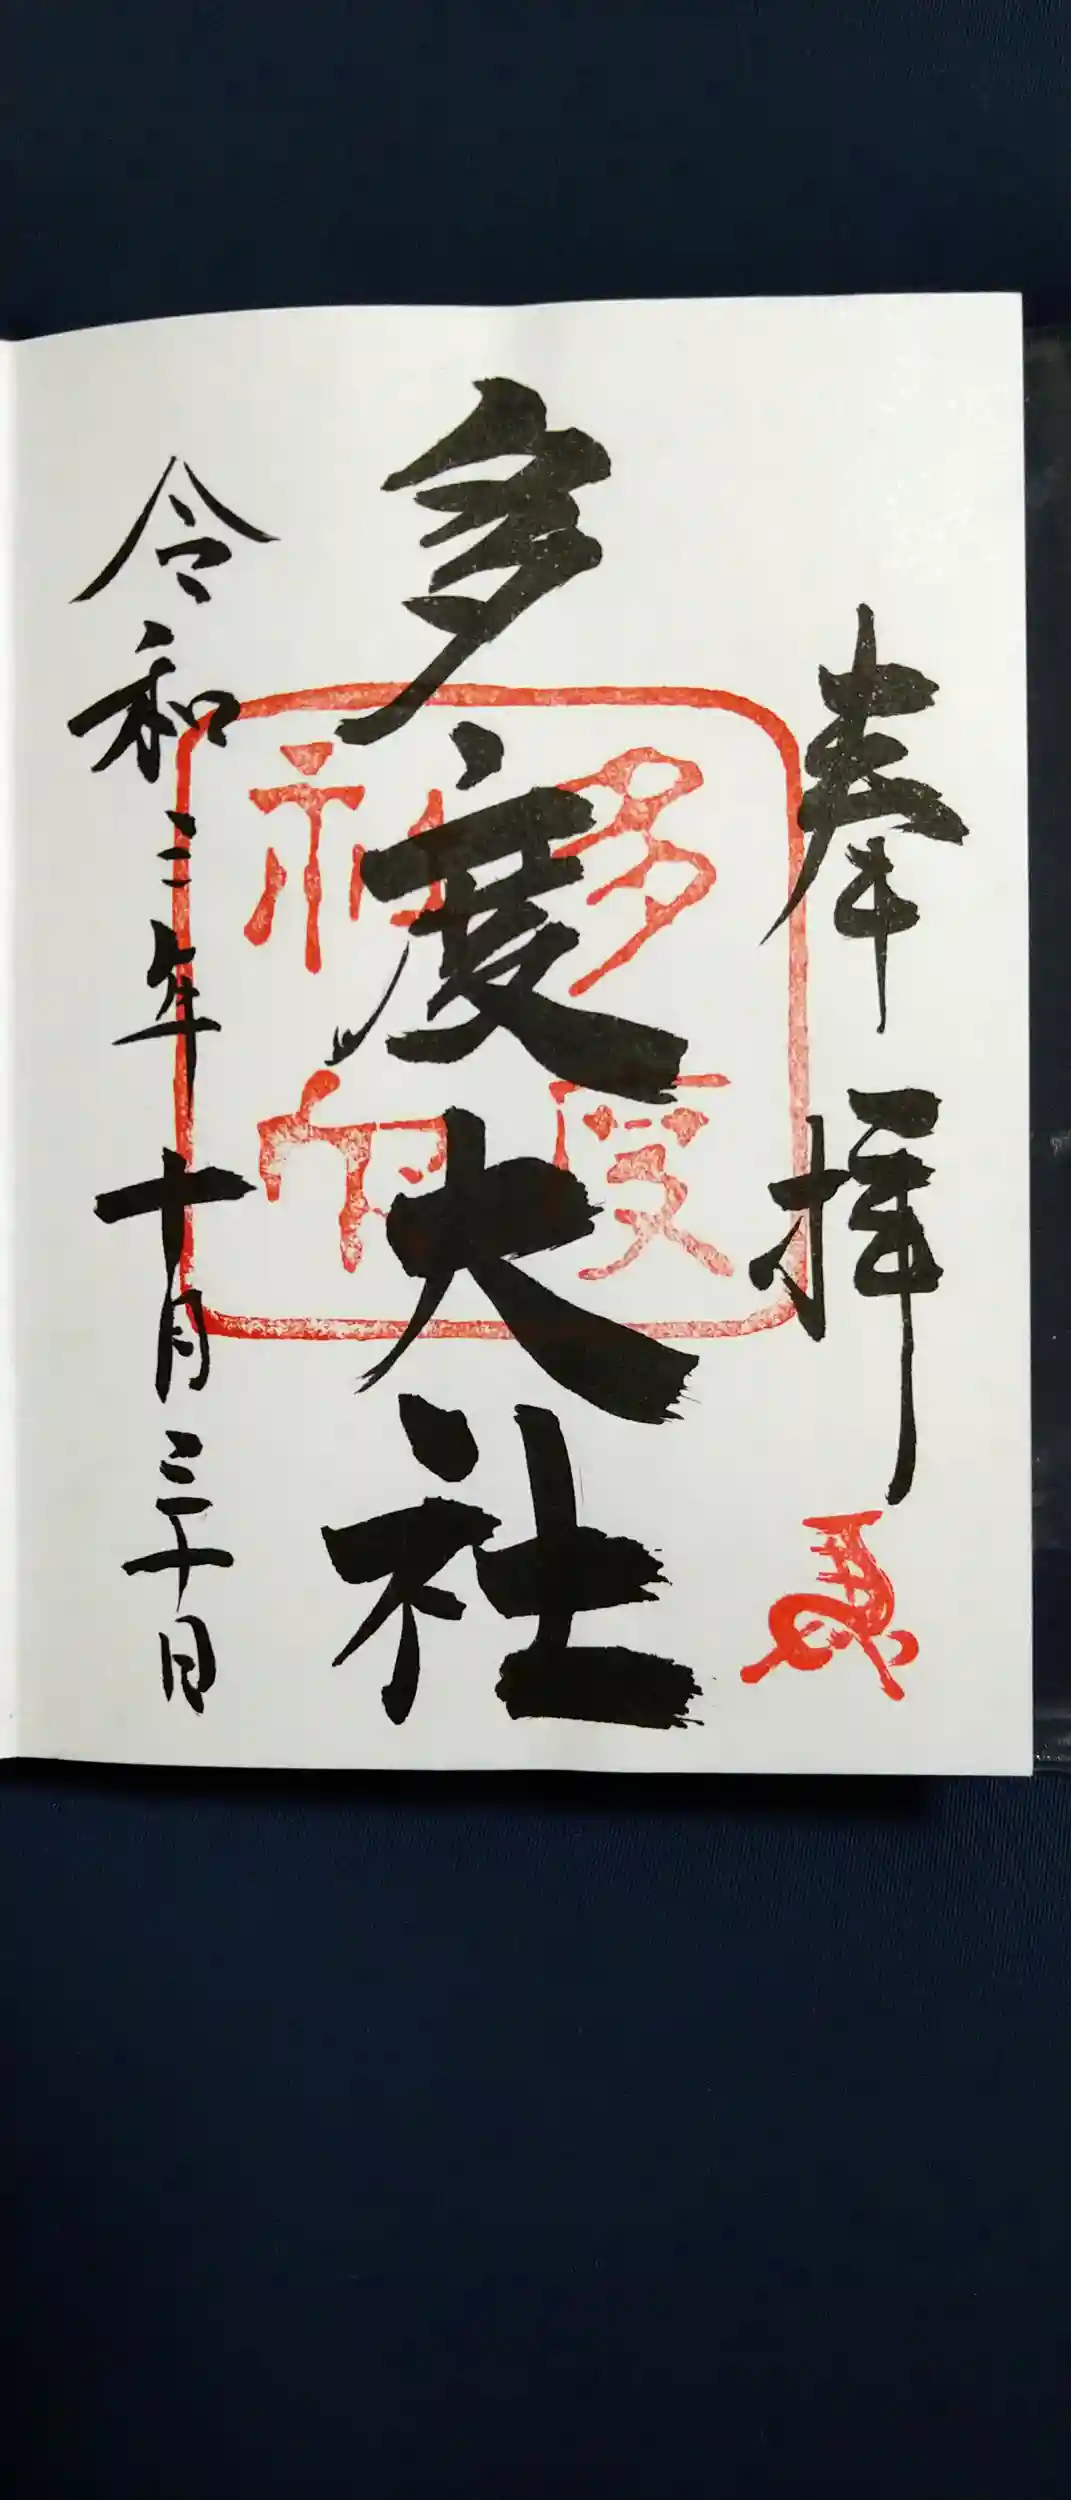 奉拝
多度大社
令和三年十月三十日
多度
神印